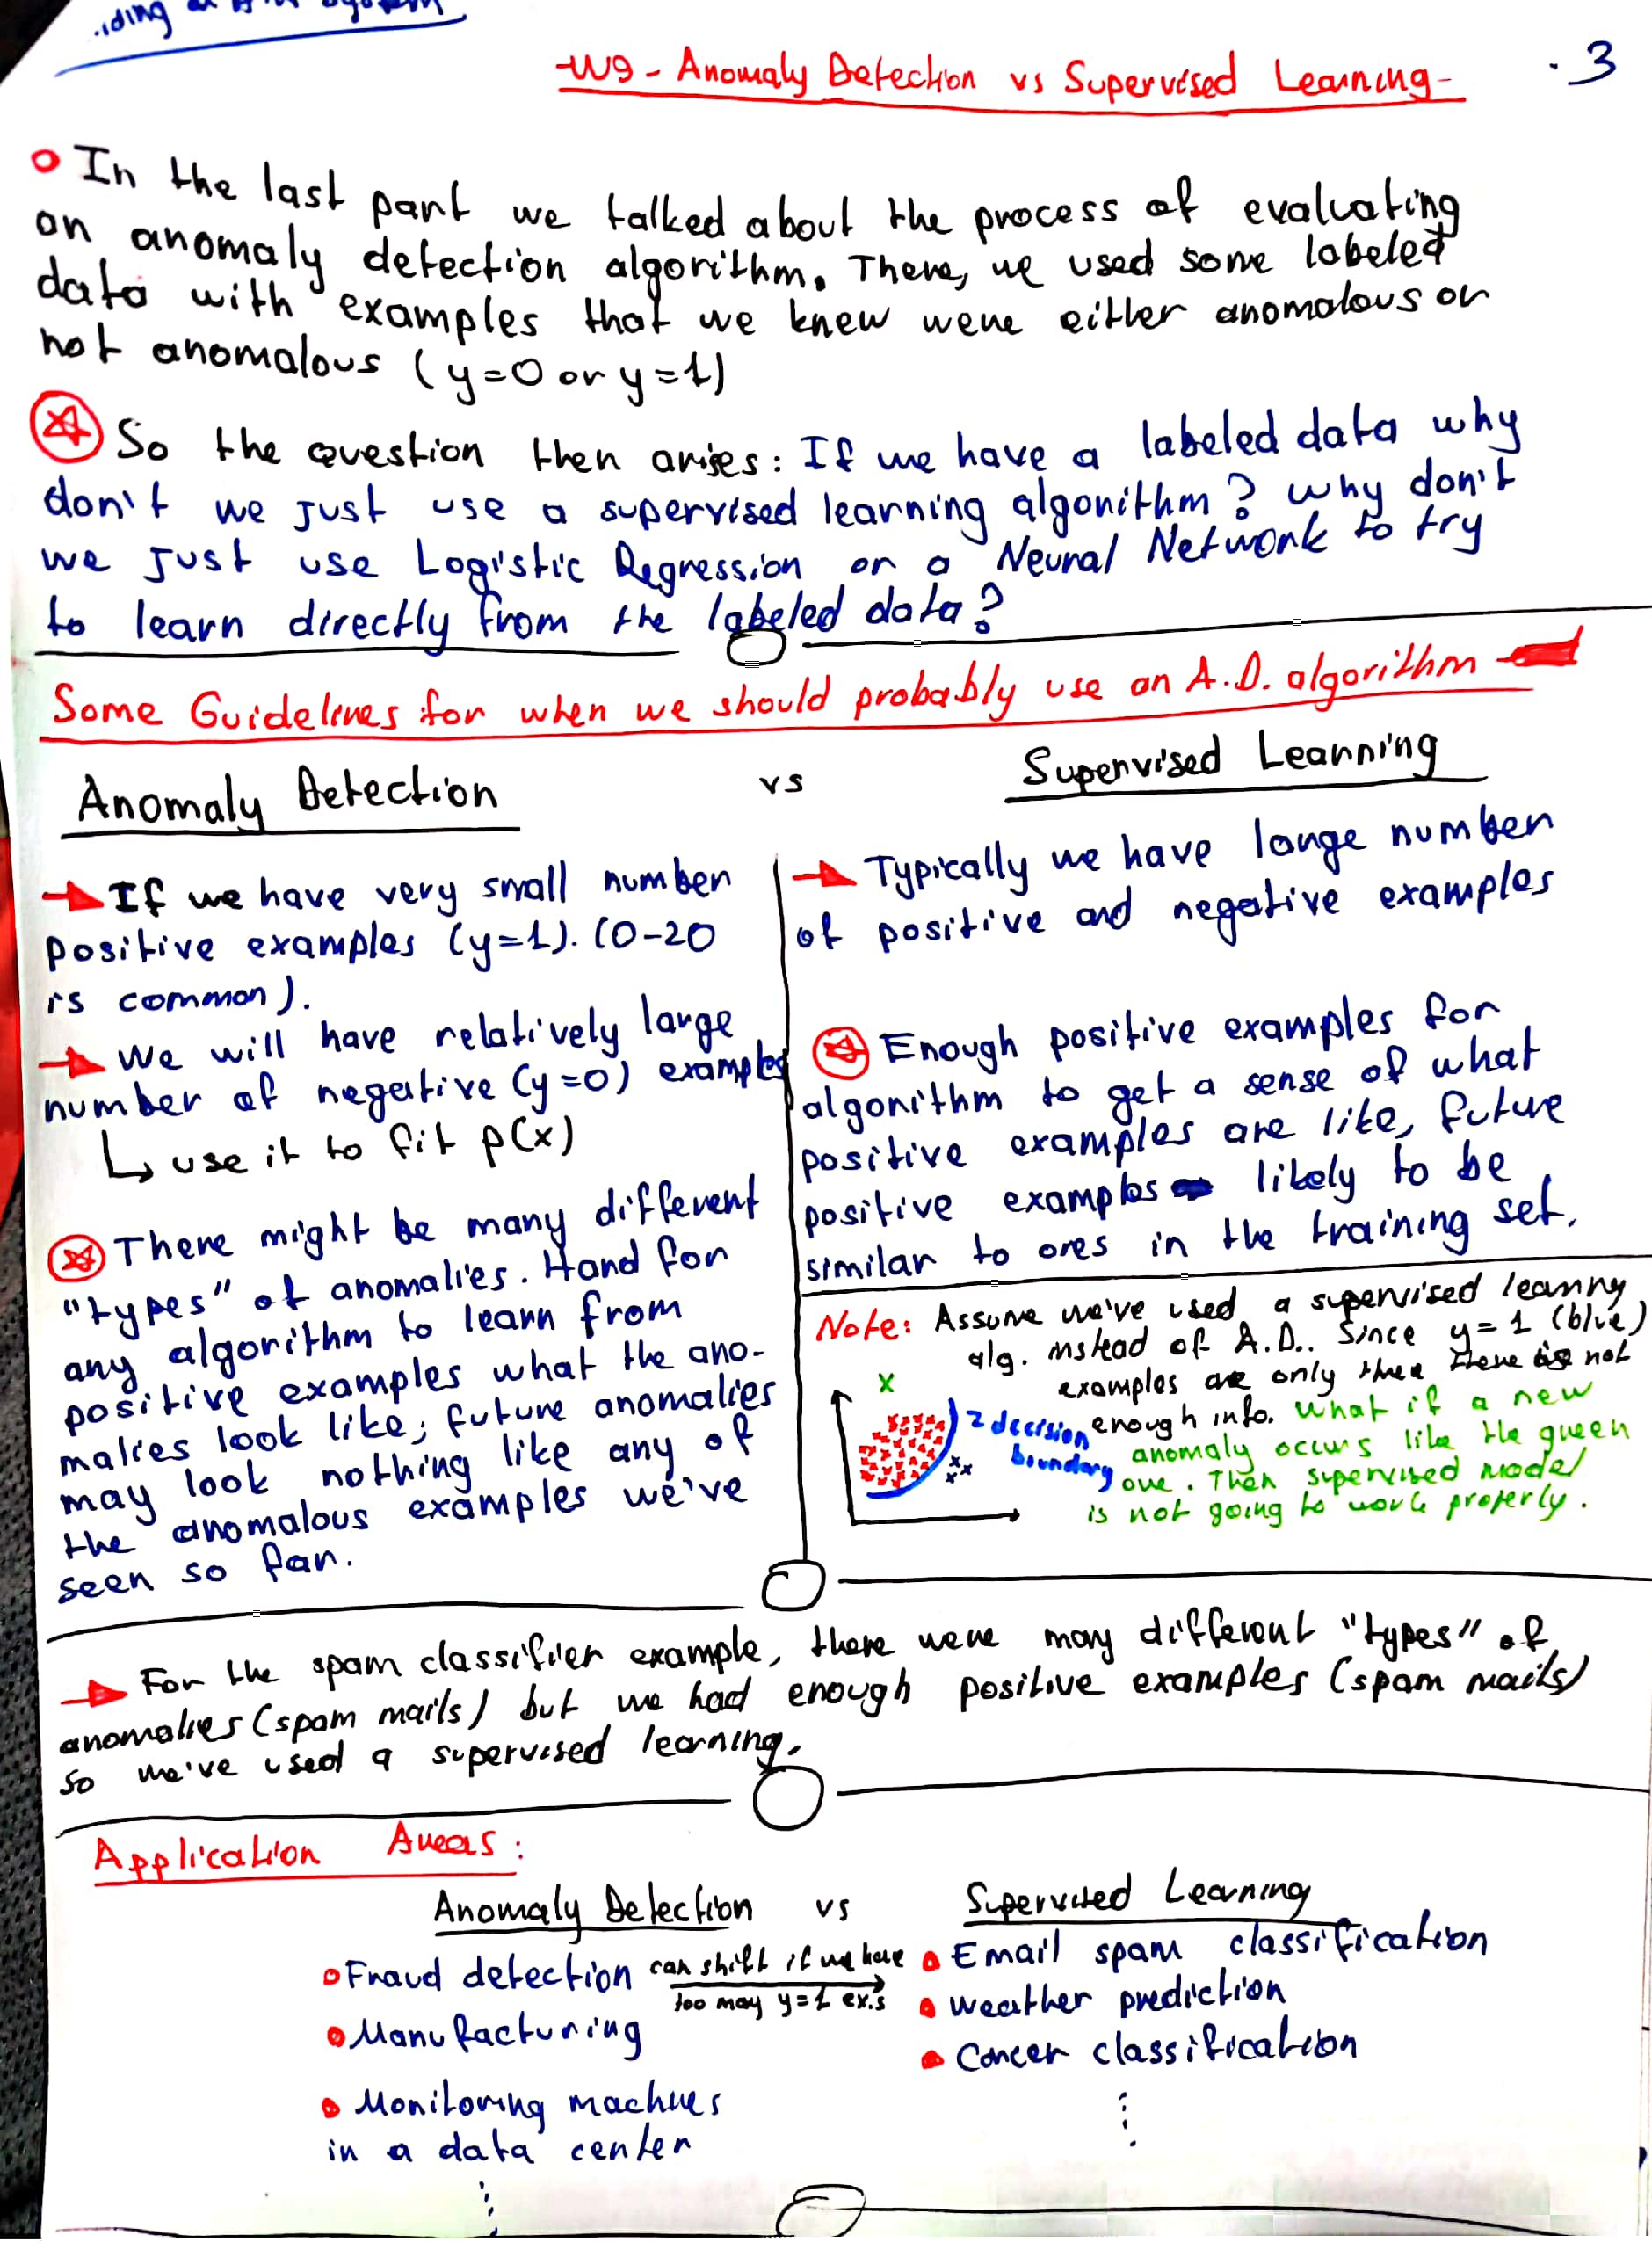 -W9- Anomaly Detection vs Supervised Learning-
. 3
In the last part we talked about the process of evaluating
an anomaly detection algorithm. There, we used some labeled
data with examples that we knew were either anomalous or
not anomalous (y=0 or y=1)
So the question then arises: If we have a labeled data why
don't we just use a supervised learning algorithm? why don't
we just use Logistic Regression or a Neural Network to try
to learn directly from the labeled data?
Some Guidelines for when we should probably use an A.D. algorithm
Anomaly Detection vs Supervised Learning
If we have very small number
positive examples (y=1). (0-20
is common).
We will have relatively large
number of negative (y=0) examples
use it to fit p(x)
There might be many different
"types" of anomalies. Hand for
any algorithm to learn from
positive examples what the ano-
malies look like; future anomalies
may look nothing like any of
the anomalous examples we've
seen so far.
Typically we have large number
of positive and negative examples
Enough positive examples for
algorithm to get a sense of what
positive examples are like, future
positive examples likely to be
similar to ones in the training set.
Note: Assume we've used a supervised learning
alg. instead of A.D.. Since y=1 (blue)
examples are only there is not
enough info. What if a new
anomaly occurs like the green
one. Then supervised model
is not going to work properly.
x
decision
boundary
For the spam classifier example, there were may different "types" of
anomalies (spam mails) but we had enough positive examples (spam mails)
so we've used a supervised learning.
Application Areas:
Anomaly Detection vs Supervised Learning
Fraud detection
can shift if we have
too may y=1 ex.s
Email spam classification
Manufacturing
weather prediction
Monitoring machines
in a data center
Cancer classification